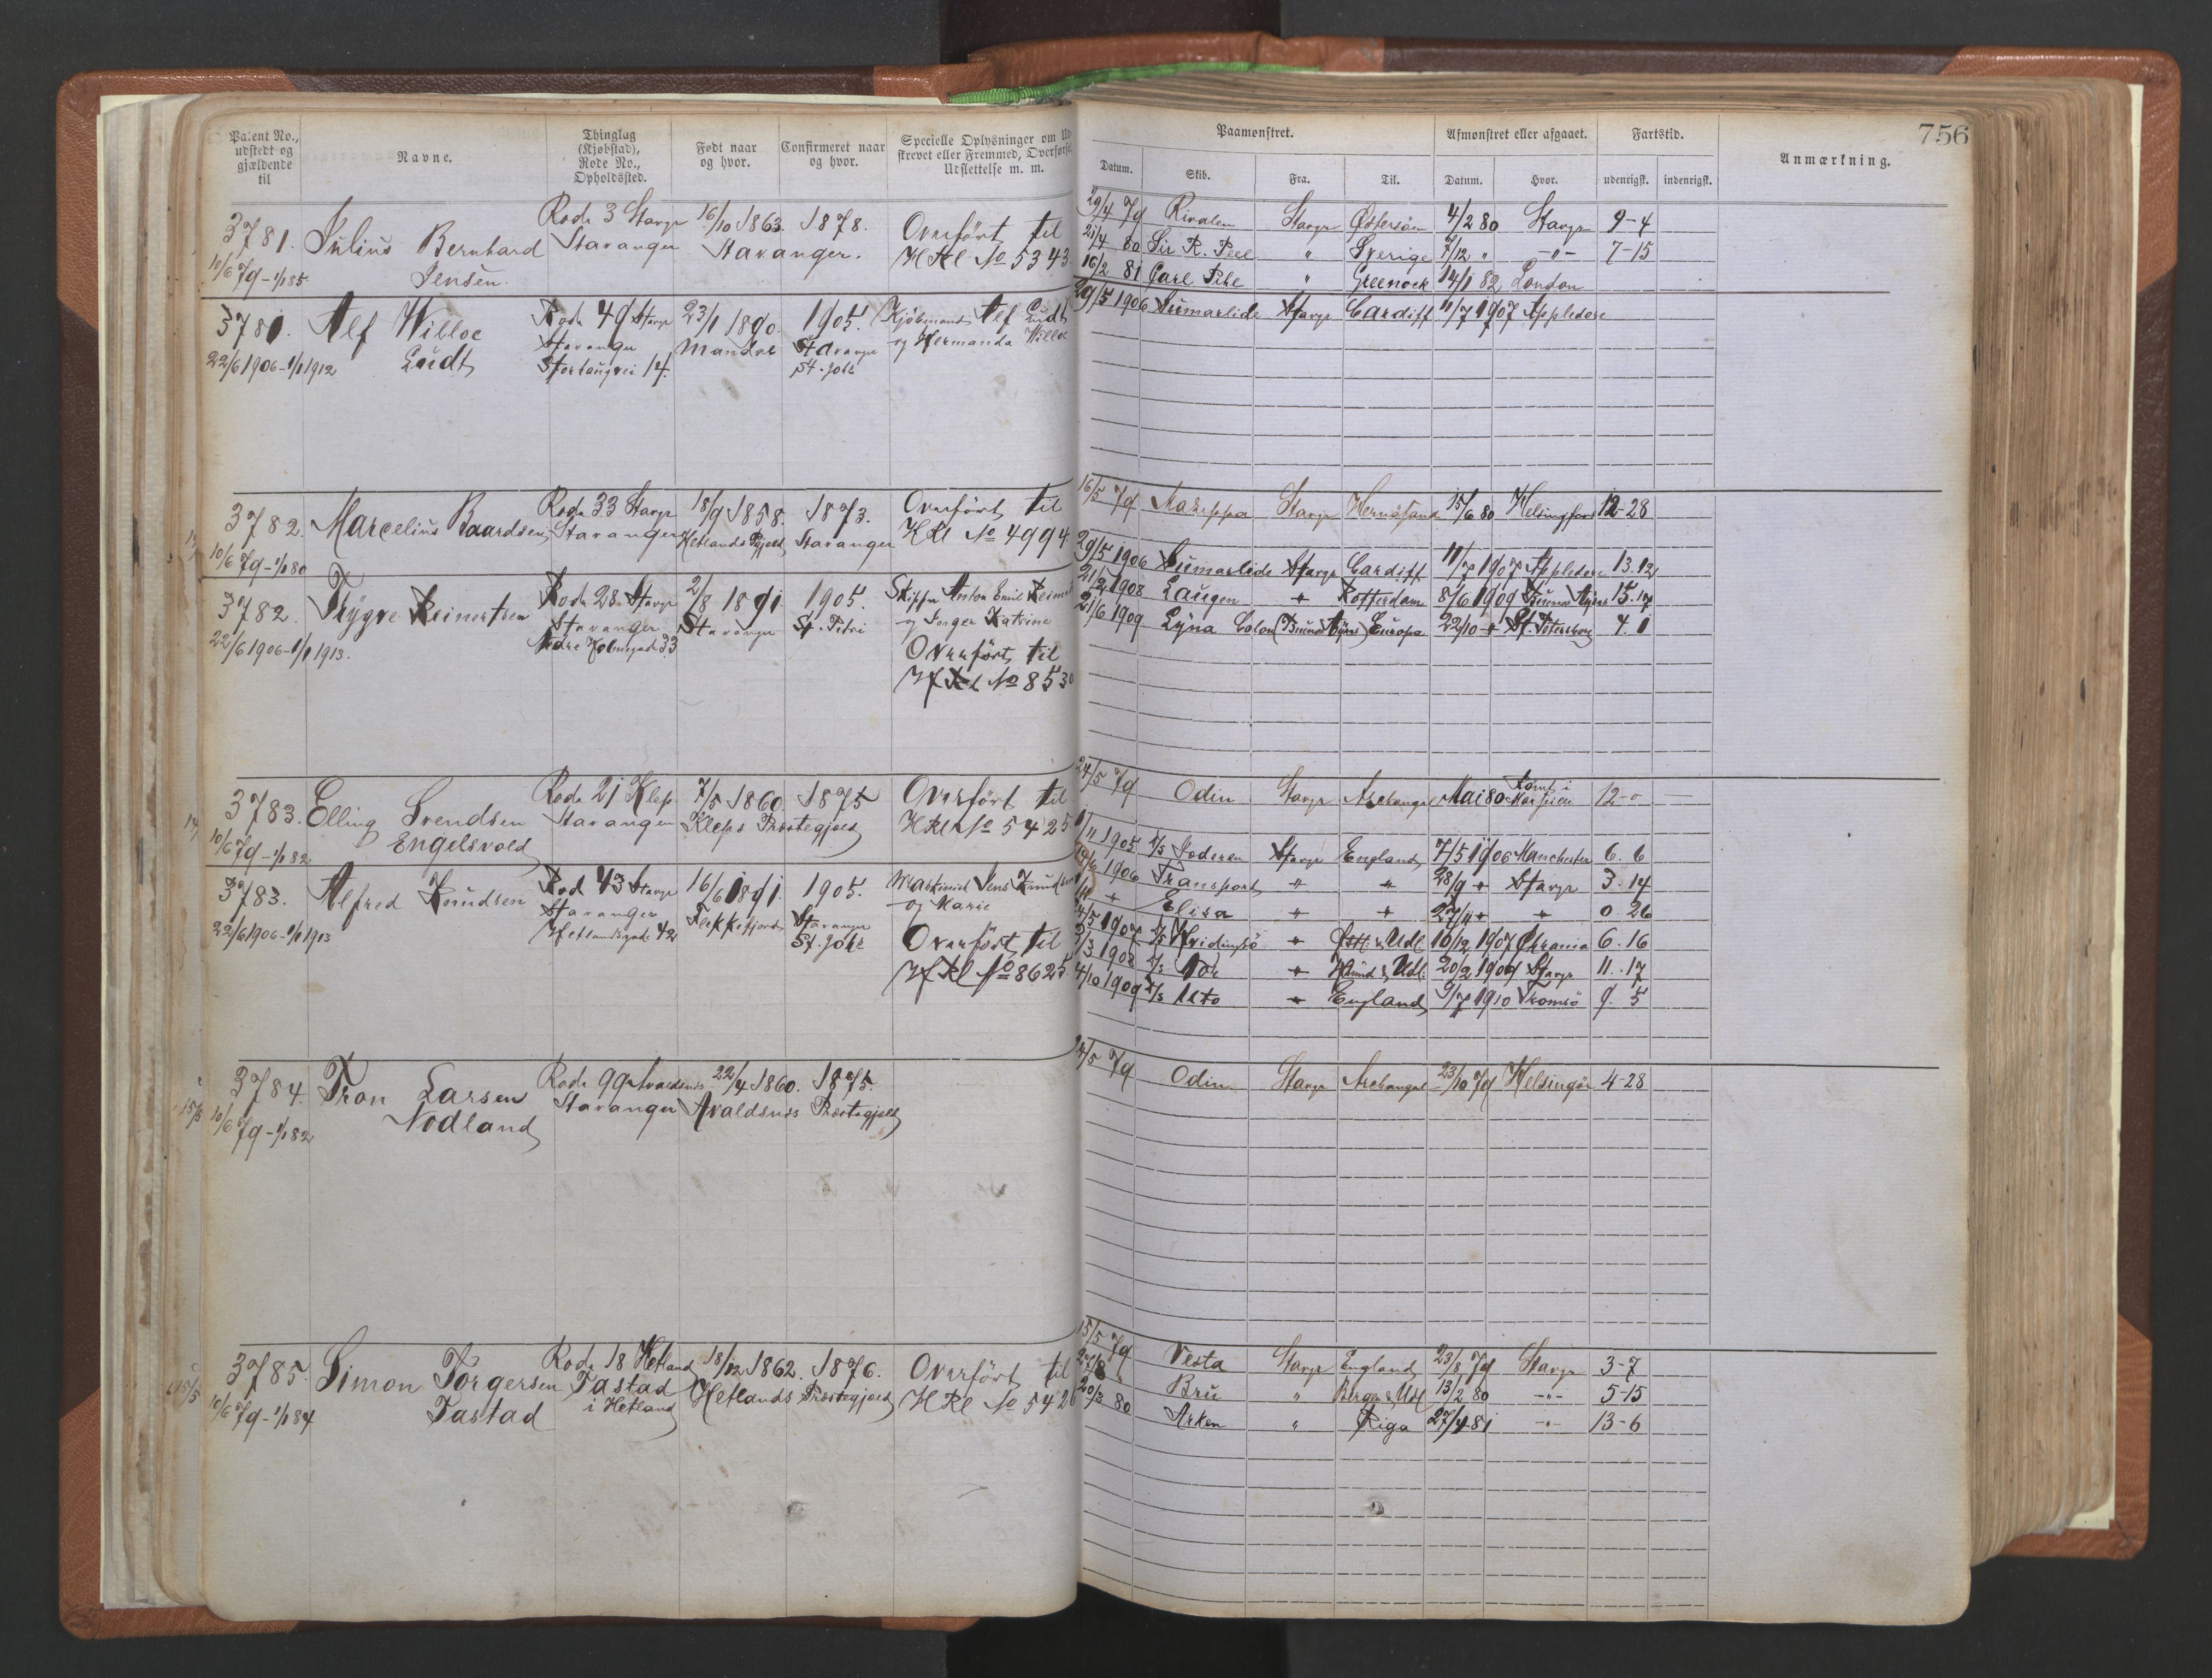 756
Patent No., udstedt og gjældende til
Navne.
Thinglag (Kjøbstad), Rode No., Opholdssted.
Født naar og hvor.
Confirmeret naar og hvor.
Specielle Oplysninger om
skrevet eller Fremmed, Overførsel
Udslettelse m. m.
Paamønstret.
Afmønstret eller afgaaet.
Fartstid.
Anmærkning.
Datum. Skib. Fra. Til. Datum. Hvor. udenrigsk. indenrigsk.
3781. Julius Bernhard Jensen.
10/6 79 - 1/1 85.
Rode 3 Stavgr Stavanger
16/10 1863. 1878.
Stavanger.
Overført til
HRl No 5343
29/4 79 Rivalen Stavgr Østersøen 4/2 80 Stavgr 9-4
21/4 80 Sir R. Peel " Sverige 7/12 " -"- 7-15
16/2 81 Carl Pihl " Greenock 14/1 82 London
3781. Alf Willoe Lundt
22/6 1906 - 1/1 1912
Rode 49 Stavgr
Stavanger
23/1 1890.
Mandal
1905.
Stavanger
St. Joh:
Kjøbmand Alf Lundt
og Hermanda Willoe
29/5 1906 Sumarlide Stavgr Cardiff 11/7 1907 Appledore
3782. Marcelius Baardsen
10/6 79 - 1/1 80
Rode 33 Stavgr
Stavanger
18/9 1858. 1873.
Hetlands Pgjeld Stavanger
Overført til
HRl No 4994
16/5 79 Stavgr Hernøsand 15/6 80 Helsingfors 12-28
3782. Trygve Reinertsen
22/6 1906 - 1/1 1913.
Rode 28 Stavgr
Stavanger
Nedre Holmegade 33
2/8 1891.
Stavanger
1905.
St. Petri
Skipper Anton Emil
og Inger Katrine
Overført til
HRl No 8530
29/5 1906 Sumarlide Stavgr Cardiff 11/7 1907 Appledore 13.12
21/2 1908 Laugen " Rotterdam 8/6 1909 Buenos Ayres 15.17
21/6 1909 Lyna Colon (Buenos Ayres) Europa 22/10 " St. Petersborg 4.1
3783. Elling Svendsen Engelsvold
10/6 79 - 1/1 82
Rode 21 Klep
Stavanger
7/5 1860 1875
Kleps Præstegjeld
Overført til
HRl No 5425
24/5 79 Odin Stavgr Archangel Mai 80 Rømt i 12-0
3783. Alfred Knudsen
22/6 1906 - 1/1 1913
Rod 43 Stavgr
Stavanger
Hetlandsgade 42
16/6 1891.
Flekkefjord
1905.
Stavanger
St. Joh:
Maskinist Jens Knudsen
og Marie
Overført til
HRl No 8625
1/11 1905 D/s Jæderen Stavgr England 7/5 1906 Manchester 6.6
1906 Transport " " 28/9 " Stavgr 3.14
Elisa " " 27/11 " " 0.26
1907 D/s Hvidingsø " Østl. & Udl 16/12 1907 Chrania 6.16
1908 D/s Vor " & Udl: 20/2 1909 Stavgr 11.17
4/10 1909 D/s Alto " England 9/7 1910 Tromsø 9.5
3784. Tron Larsen Nodland
10/6 79 - 1/1 82
Rode 99 Avaldsnes
Stavanger
22/4 1860. 1875.
Avaldsnes Præstegjeld
24/5 79 Odin Stavgr Archangel 23/10 79 Helsingør 4-28
3785. Simon Torgersen Tastad
10/6 79 - 1/1 84
Rode 18 Hetland
Tastad
i Hetland
18/12 1862. 1876.
Hetlands Præstegjeld
Overført til
HRl No 5426
15/5 79 Vesta Stavgr England 23/8 79 Stavgr 3-7
27/8 " Bru " Bergen & Udl 13/2 80 -"- 5-15
20/3 80 Arken " Riga 27/4 81 -"- 13-6